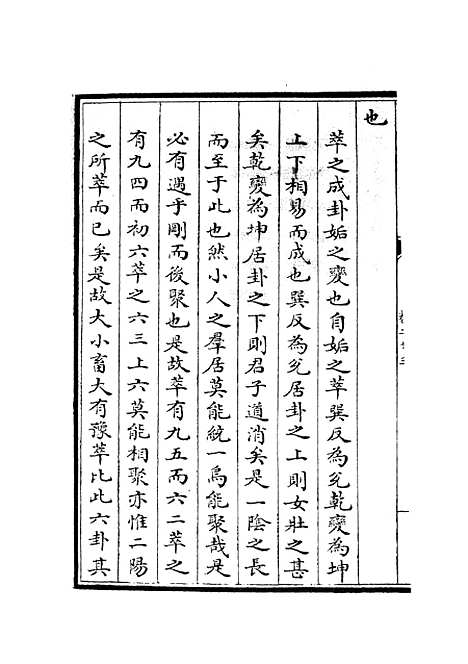 也
萃之成卦姤之變也自姤之萃巽反為兊乾變為坤
上下相易而成也巽反為兊居卦之上則女壯之甚
矣乾變為坤居卦之下則君子道消矣是一陰之長
而至于此也然小人之羣居莫能統一焉能聚哉是
必有遇乎剛而後聚也是故萃有九五而六二萃之
有九四而初六萃之六三上六莫能相聚亦惟二陽
之所萃而已矣是故大小畜大有豫萃比此六卦其